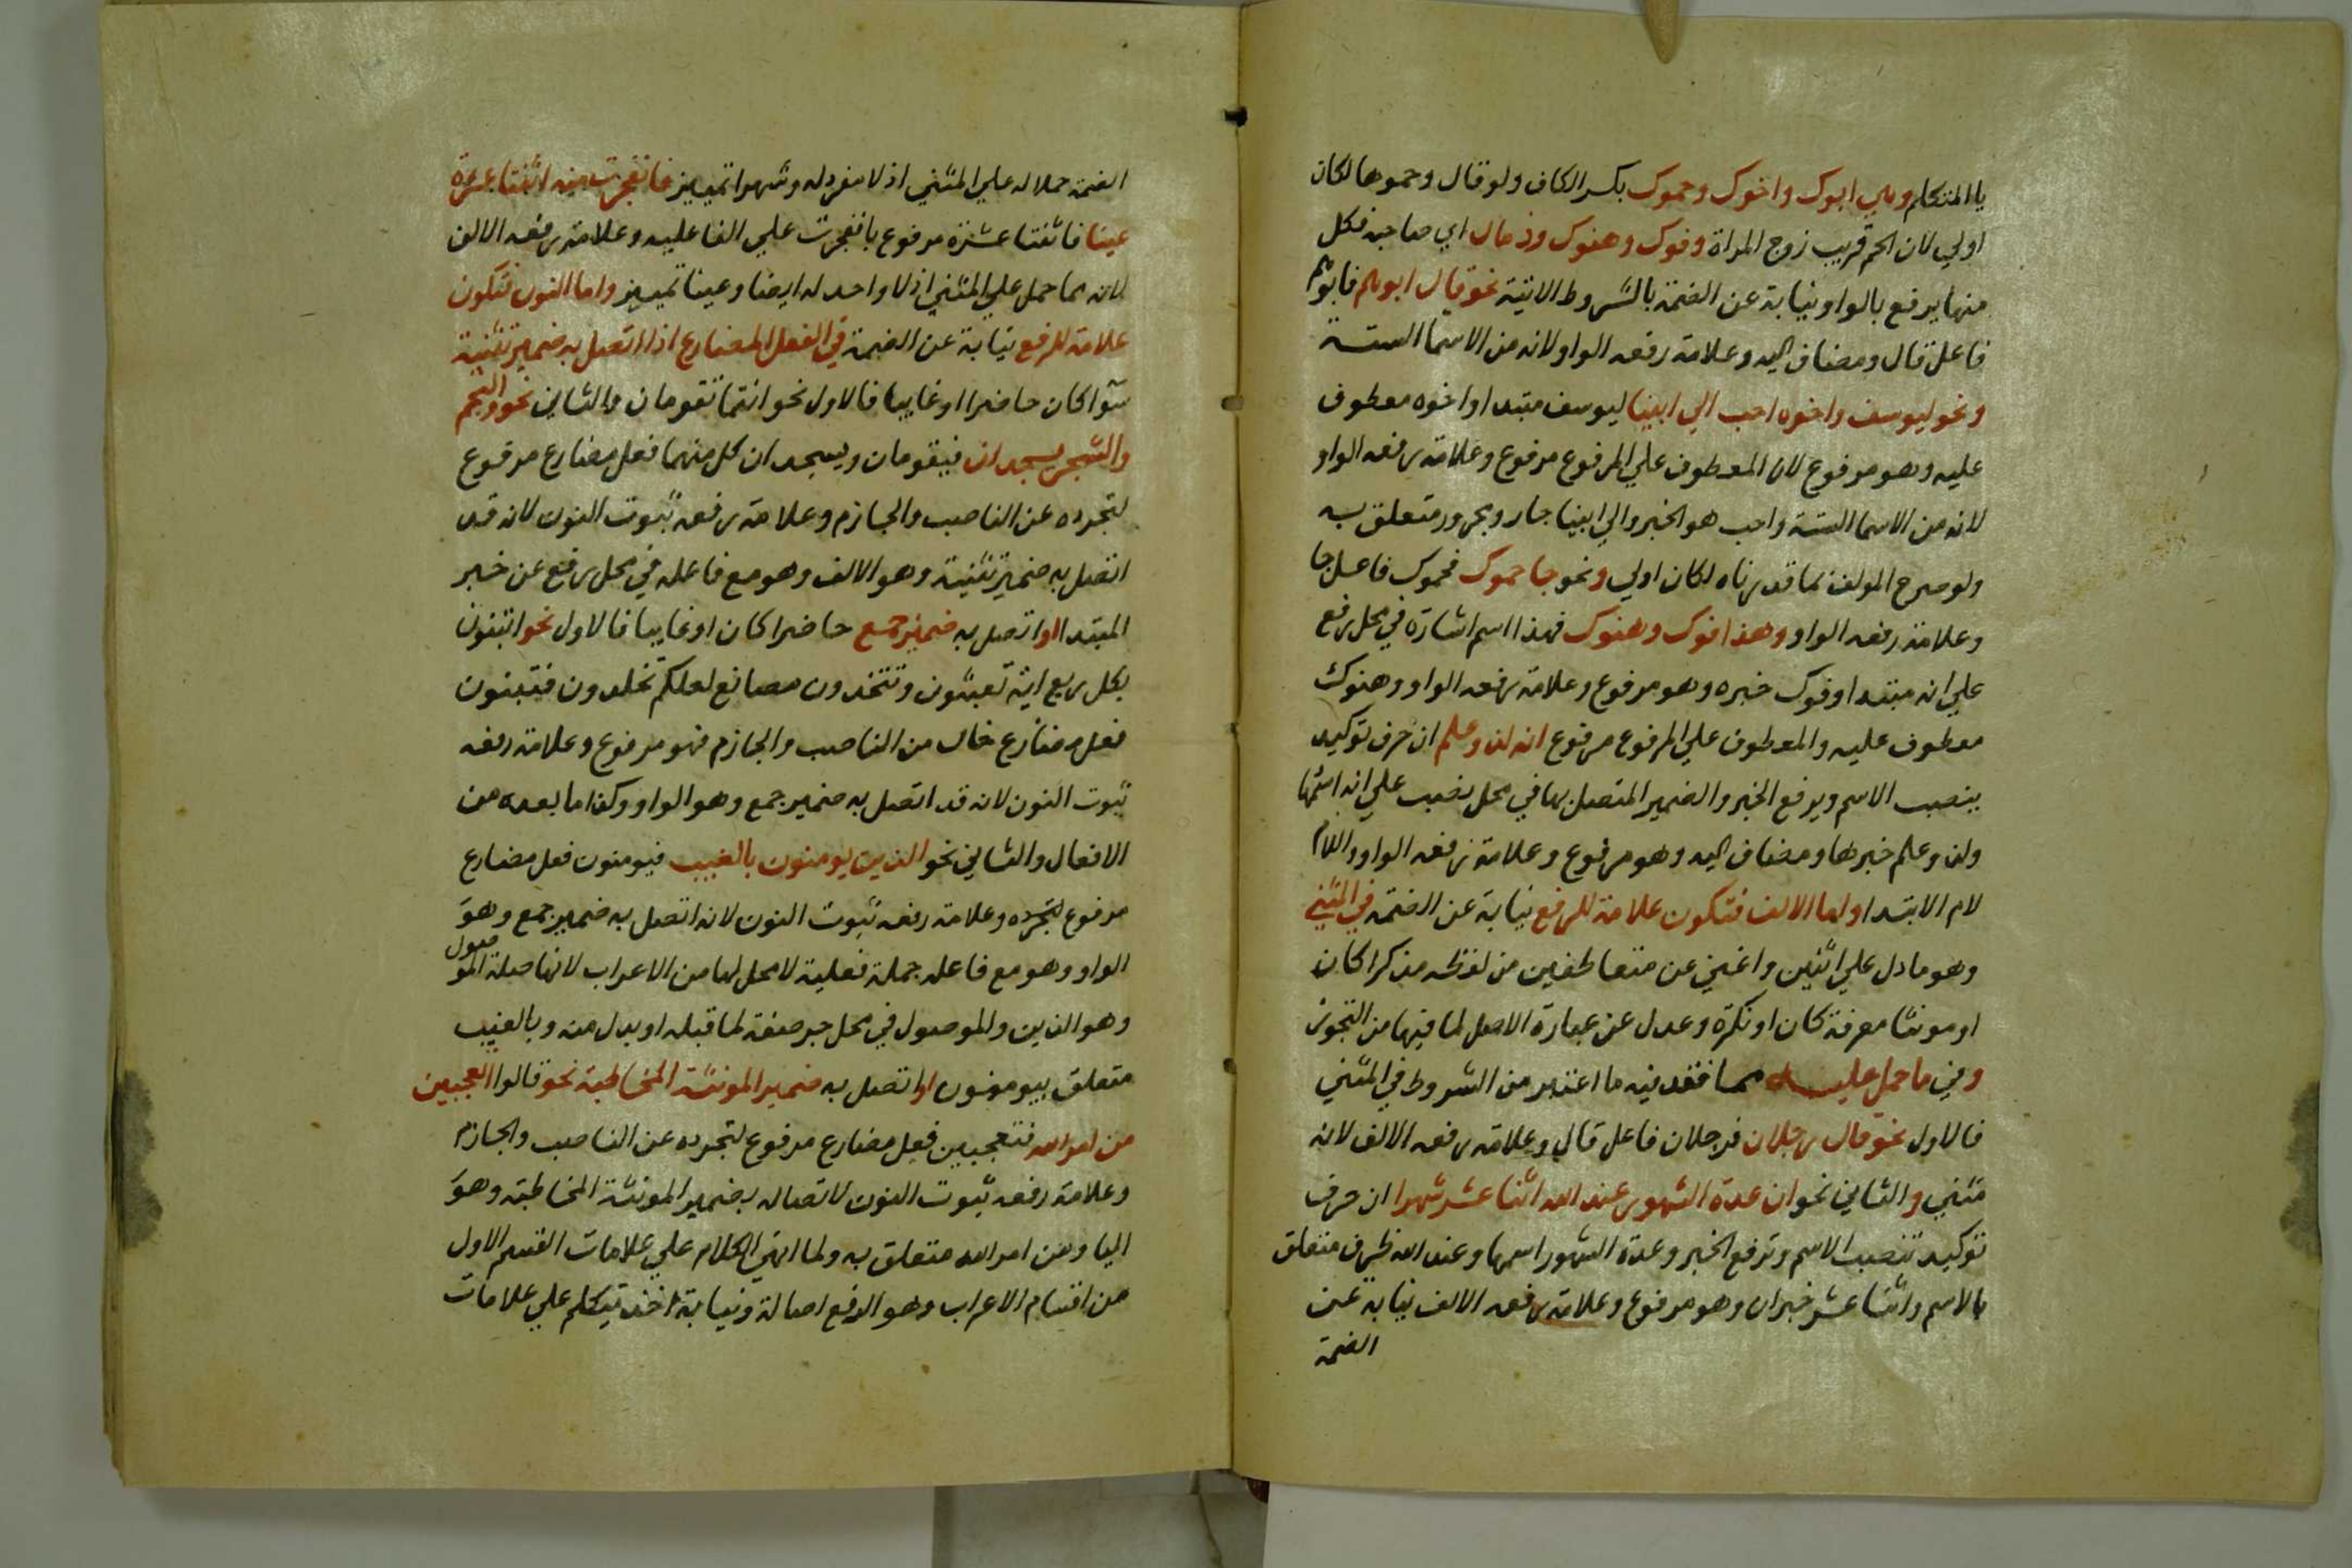 يا المتكلم وهي ابوك واخوك وحموك بكسر الكاف ولو قال وحموها لكان
اولي لان الحم قريب زوج المراة وفوك وهنوك وذمال اي صاحبه فكل
منها يرفع بالواو نيابة عن الضمة بالشروط الاتية نحو قال ابوهم فابوهم
فاعل قال ومضاف اليه وعلامة رفعه الواو لانه من الاسما الستة
ونحو ليوسف واخوه احب الي ابينا ليوسف مبتدا واخوه معطوف
عليه وهو مرفوع لان المعطوف علي المرفوع مرفوع وعلامة رفعه الواو
لانه من الاسما الستة واحب هو الخبر والي ابينا جار ومجرور متعلق به
ولو صرح المولف بما قدرناه لكان اولي ونحو جا حموك فحموك فاعل جا
وعلامة رفعه الواو وهذا فوك وهنوك فهذا اسم اشارة في محل رفع
علي انه مبتدا وفوك خبره وهو مرفوع وعلامة رفعه الواو وهنوك
معطوف عليه والمعطوف علي المرفوع مرفوع انه لذو علم ان حرف توكيد
ينصب الاسم ويرفع الخبر والضمير المتصل بها في محل نصب علي انه اسمها
ولذو علم خبرها ومضاف اليه وهو مرفوع وعلامة رفعه الواو واللام
لام الابتدا واما الالف فتكون علامة للرفع نيابة عن الضمة في المثني
وهو ما دل علي اثنين واغني عن متعاطفين من لفظه مذكرا كان
او مونثا معرفة كان او نكرة وعدل عن عبارة الاصل لما فيها من التجوز
وفي ما حمل عليه مما فقد فيه ما اعتبر من الشروط في المثني
فالاول نحو قال رجلان فرجلان فاعل قال وعلامة رفعه الالف لانه
مثني والثاني نحو ان عدة الشهور عند الله اثنا عشر شهرا ان حرف
توكيد تنصب الاسم وترفع الخبر وعدة الشهور اسمها وعند الله ظرف متعلق
بالاسم واثنا عشر خبر ان وهو مرفوع وعلامة رفعه الالف نيابة عن
الضمة
الضمة حملا له علي المثني اذ لا مفرد له وشهرا تمييز فانفجرت منه اثنتا عشرة
عينا فاثنتا عشرة مرفوع بانفجرت علي الفاعلية وعلامة رفعه الالف
لانه مما حمل علي المثني اذ لا واحد له ايضا وعينا تمييز واما النون فتكون
علامة للرفع نيابة عن الضمة في الفعل المضارع اذا اتصل به ضمير تثنية
سوآ كان حاضرا او غايبا فالاول نحو انتما تقومان والثاني نحو والنجم
والشجر يسجدان فيقومان ويسجدان كل منهما فعل مضارع مرفوع
لتجرده عن الناصب والجازم وعلامة رفعه ثبوت النون لانه قد
اتصل به ضمير تثنية وهو الالف وهو مع فاعله في محل رفع عن خبر
المبتدا او اتصل به ضمير جمع حاضرا كان او غايبا فالاول نحو اتبنون
بكل ريع اية تعبثون وتتخذون مصانع لعلكم تخلدون فتبنون
فعل مضارع خال من الناصب والجازم فهو مرفوع وعلامة رفعه
ثبوت النون لانه قد اتصل به ضمير جمع وهو الواو وكذا ما بعده من
الافعال والثاني نحو الذين يومنون بالغيب فيومنون فعل مضارع
مرفوع لتجرده وعلامة رفعه ثبوت النون لانه اتصل به ضمير جمع وهو
الواو وهو مع فاعله جملة فعلية لا محل لها من الاعراب لانها صلة الموصول
وهو الذين والموصول في محل جر صفة لما قبله او بدل منه وبالغيب
متعلق بيومنون او اتصل به ضمير المونثة المخاطبة نحو قالوا اتعجبين
من امر الله فتعجبين فعل مضارع مرفوع لتجرده عن الناصب والجازم
وعلامة رفعه ثبوت النون لاتصاله بضمير المونثة المخاطبة وهو
اليا ومن امر الله متعلق به ولما انهي الكلام علي علامات القسم الاول
من اقسام الاعراب وهو الرفع اصالة ونيابة اخذ يتكلم علي علامات